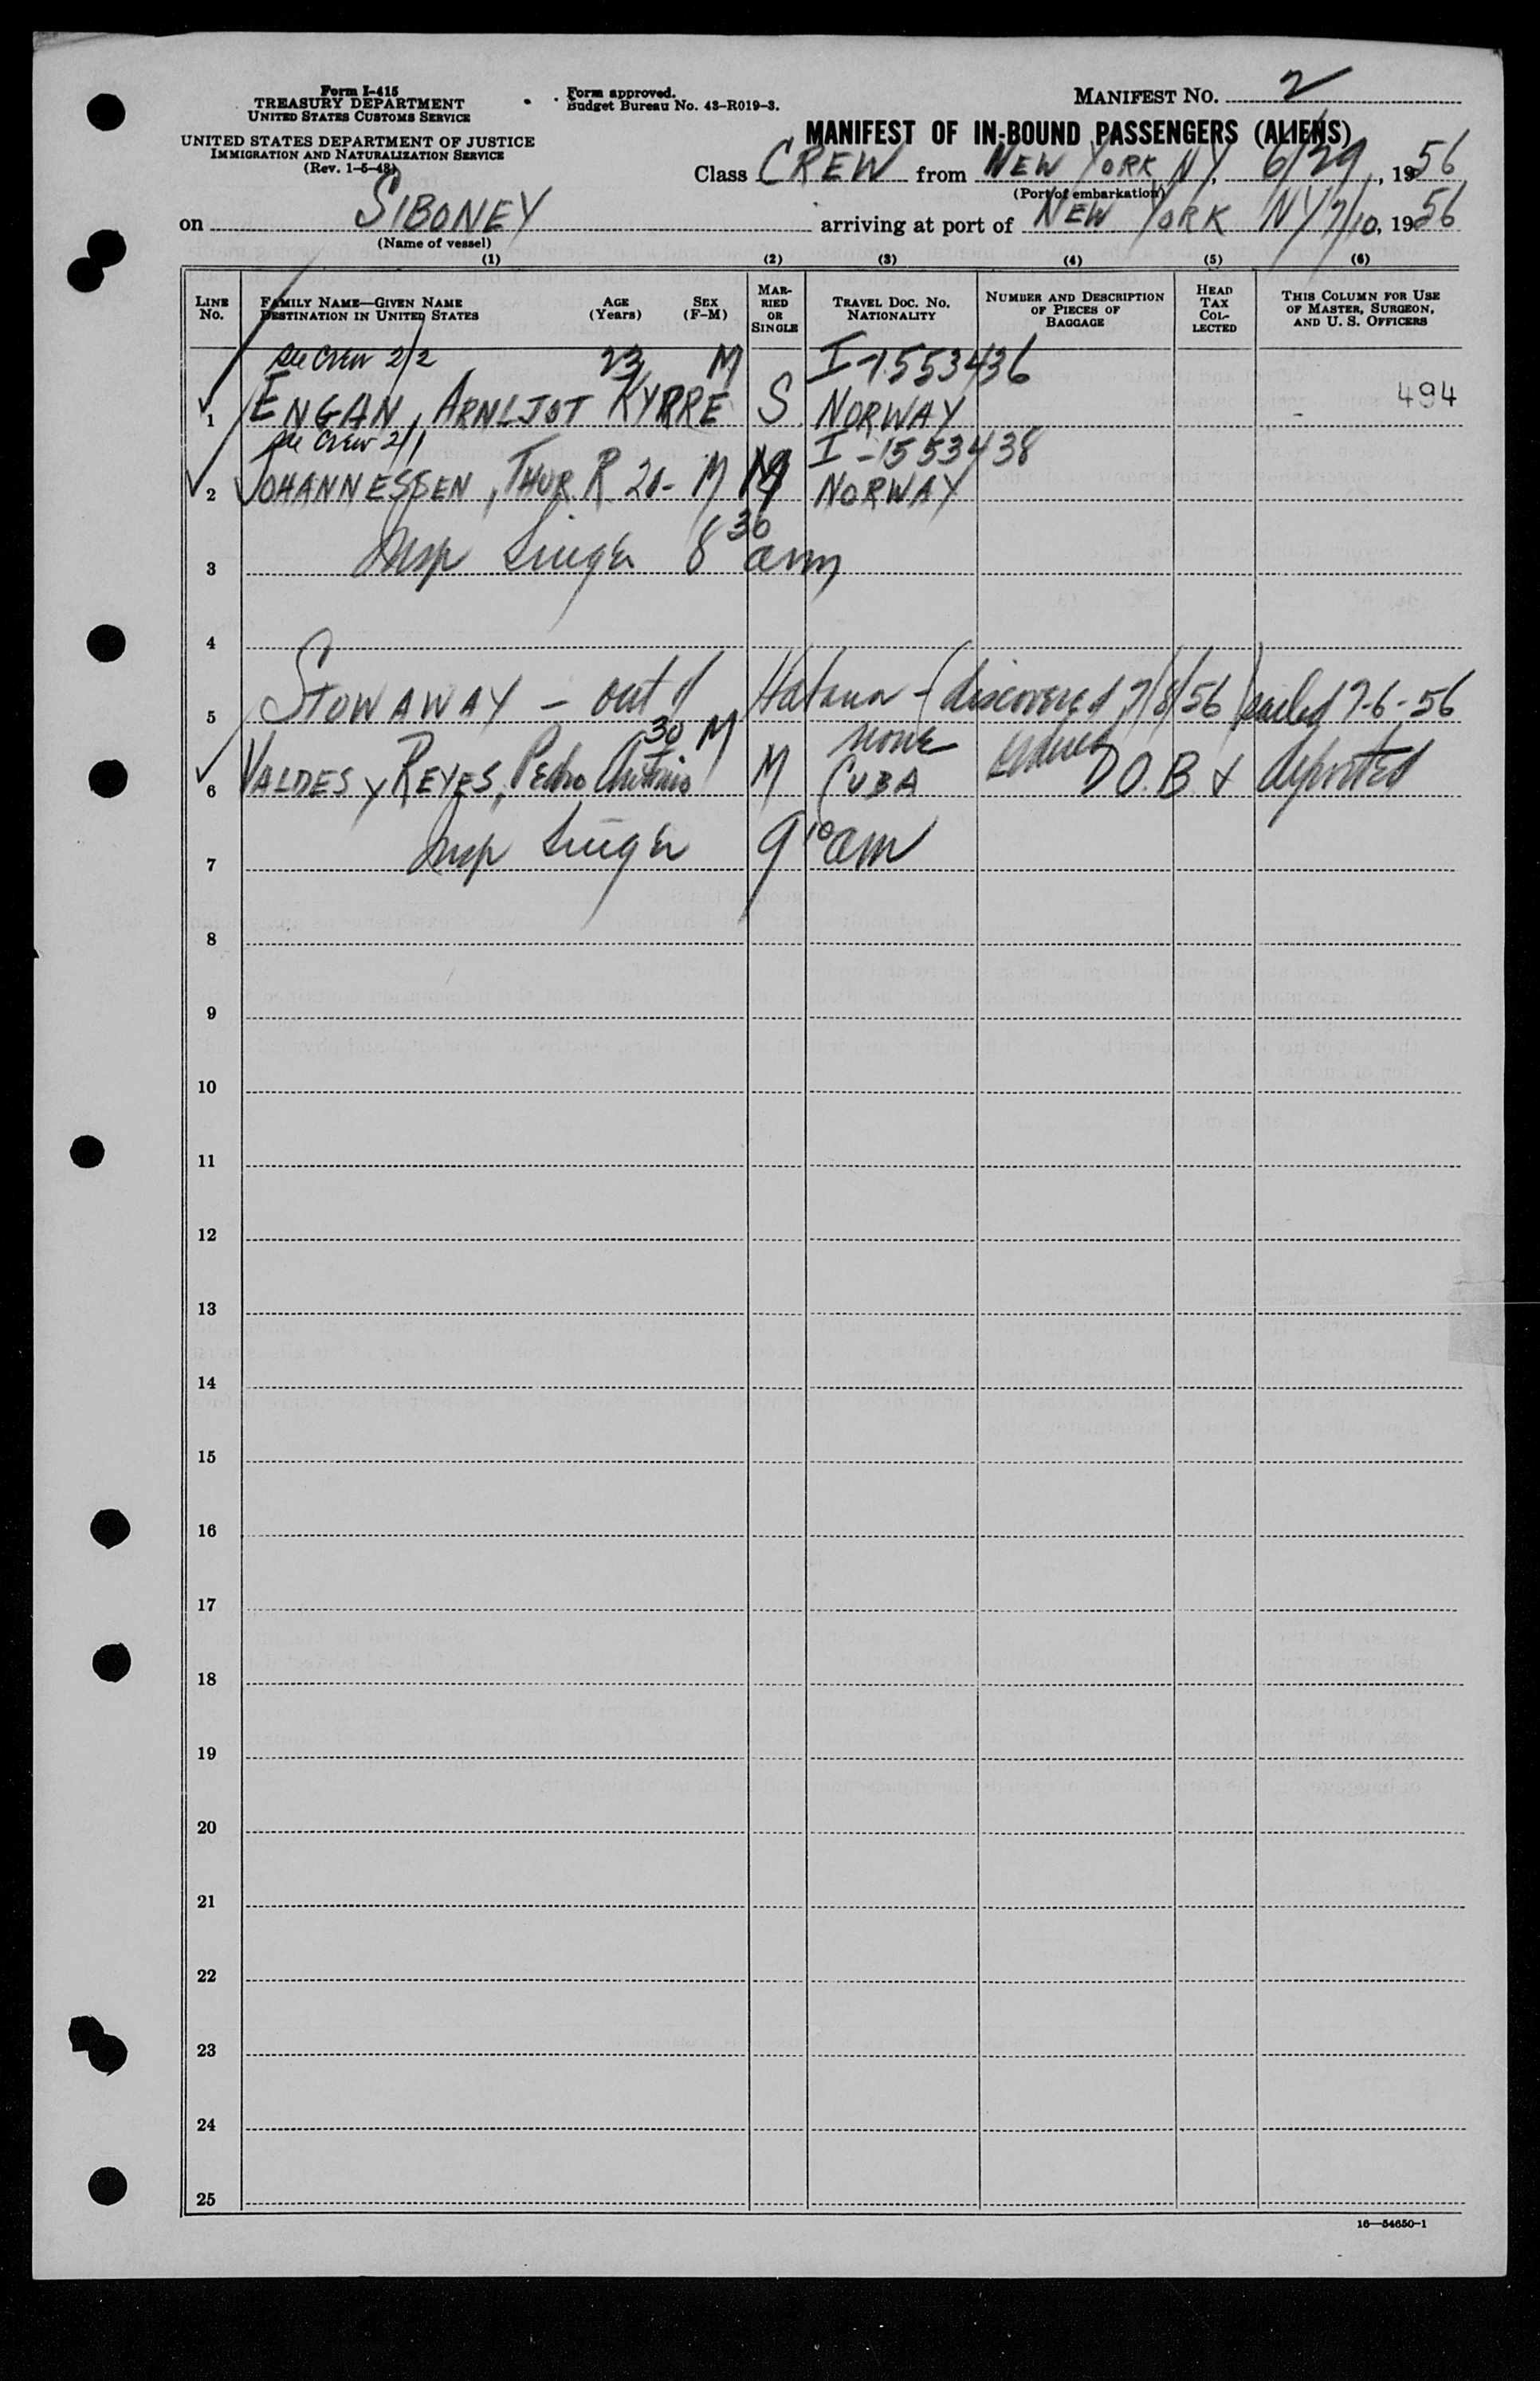 Form I-415
TREASURY DEPARTMENT
UNITED STATES CUSTOMS SERVICE
UNITED STATES DEPARTMENT OF JUSTICE
IMMIGRATION AND NATURALIZATION SERVICE
(Rev. 1-5-48)
Form approved.
Budget Bureau No. 43-R019-3.
MANIFEST NO. 2
MANIFEST OF IN-BOUND PASSENGERS (ALIENS)
Class CREW from NEW YORK NY, 6/29, 1956
(Port of embarkation)
on SIBONEY arriving at port of NEW YORK NY 7/10, 1956
(Name of vessel)
(1) (2) (3) (4) (5) (6)
LINE NO.
FAMILY NAME—GIVEN NAME
DESTINATION IN UNITED STATES
AGE (Years)
SEX (F-M)
MARRIED OR SINGLE
TRAVEL DOC. NO.
NATIONALITY
NUMBER AND DESCRIPTION OF PIECES OF BAGGAGE
HEAD TAX COLLECTED
THIS COLUMN FOR USE OF MASTER, SURGEON, AND U. S. OFFICERS
see Crew 2/2 23 M I-1553436
1 ENGAN, ARNLJOT KYRRE S NORWAY 494
see Crew 2/1 I-1553438
2 JOHANNESSEN, THOR R. 20- M M NORWAY
3 Insp Singer 8 30 am
4
5 STOWAWAY - out of Havana - (discovered 7/8/56) sailed 7-6-56
30 M none
6 VALDES Y REYES, Pedro Antonio M CUBA D.O.B. & deported
7 Insp Singer 9 10 am
8
9
10
11
12
13
14
15
16
17
18
19
20
21
22
23
24
25
16—54650-1